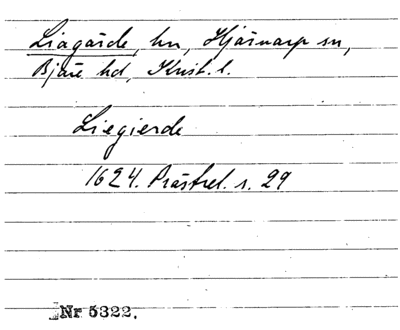 Liagärde, hn, Hjärnarp sn,
Bjäre hd, Krist. l.
Liegierde
1624. Prästrel. s. 29
Nr 5322.